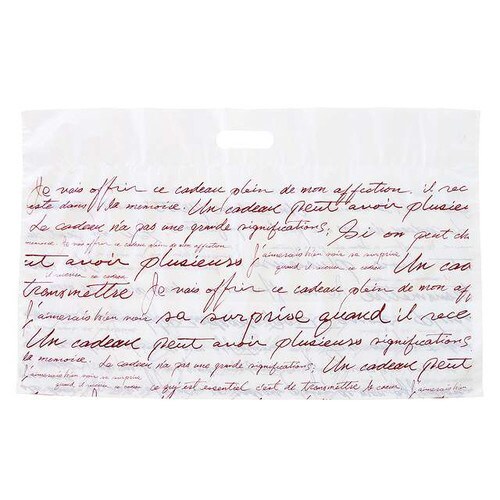 Je vais offrir ce cadeau plein de mon affection. il rec
este dans la memoire. Un cadeau peut avoir plusieu
Le cadeau n'a pas une grande signification, Si on peut ch
memoire. Je vais offrir ce cadeau plein de mon affection. J'aimerais bien voir sa surprise
ut avoir plusieurs quand il recevra ce cadeau Un cad
transmettre Je vais offrir ce cadeau plein de mon aff
J'aimerais bien voir sa surprise quand il rece
Un cadeau peut avoir plusieurs signification
la memoire. Le cadeau n'a pas une grande signification, Un cadeau peut
J'aimerais bien voir sa surprise
quand il recevra ce cadeau ce qui est essentiel c'est de transmettre le coeur J'aimerais bien